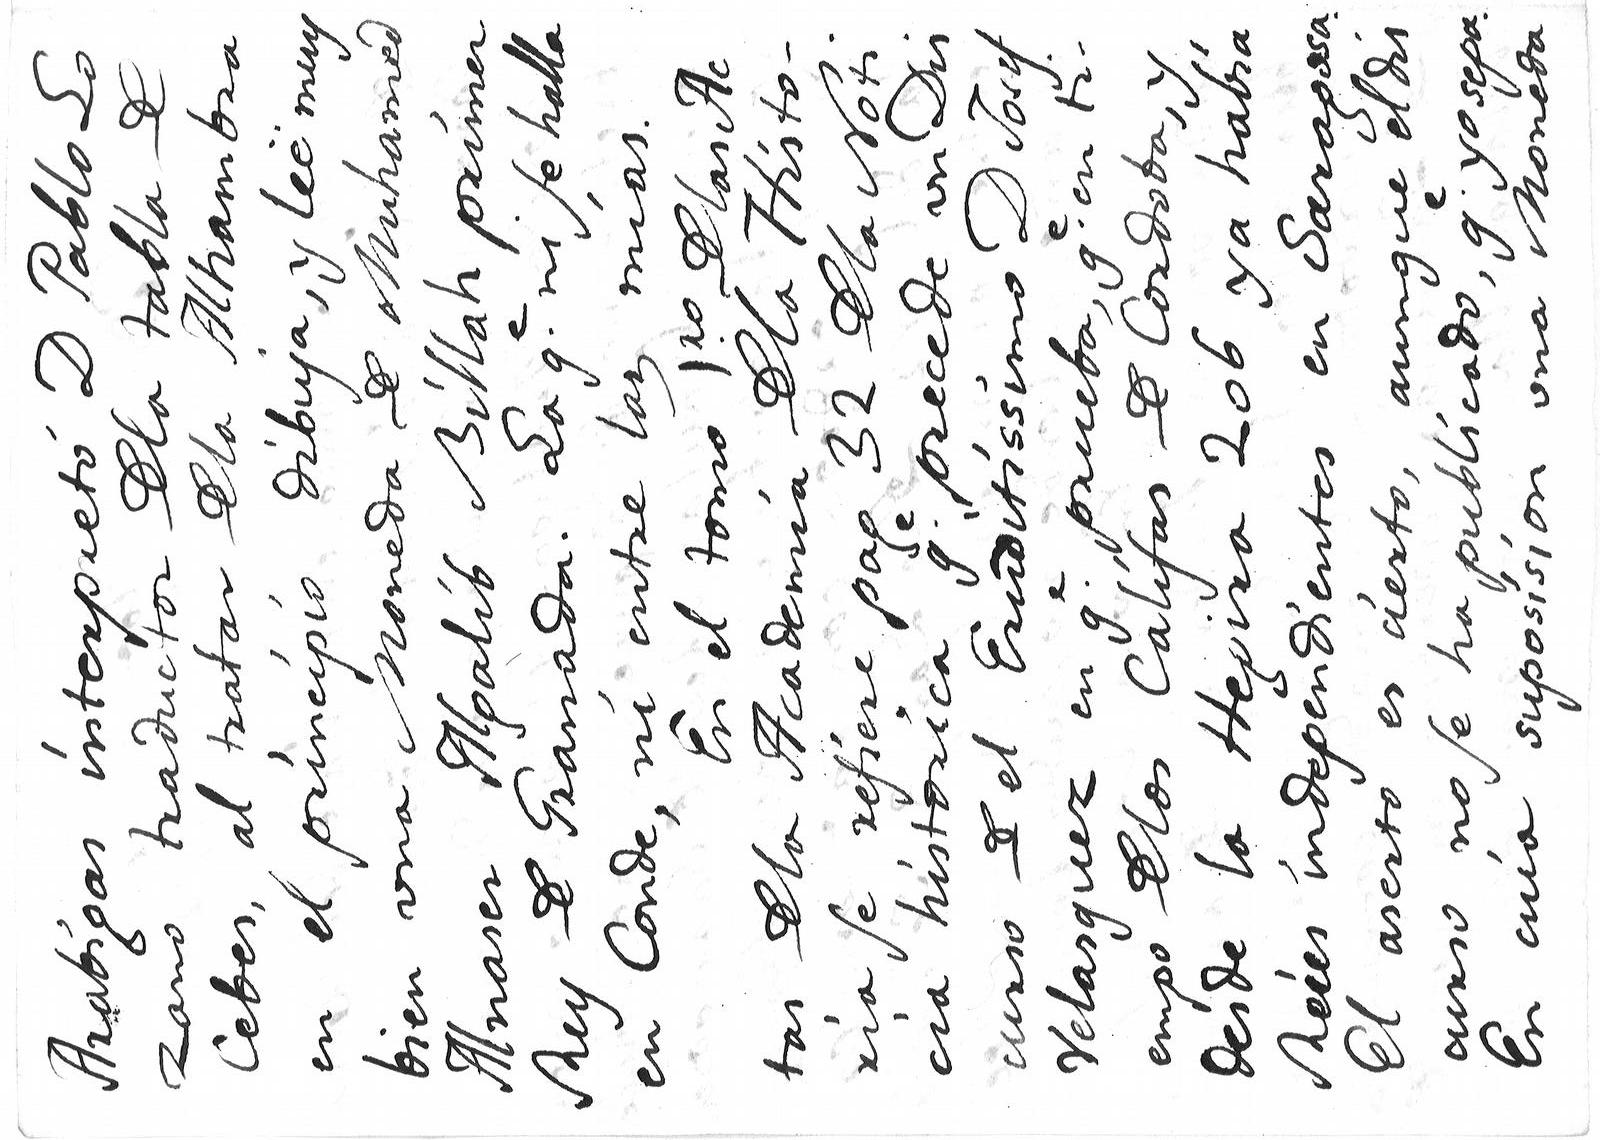 Arabigas interpretó D Pablo Lo
zano traductor Dla tabla De
Cebes, al tratar Dla Alhambra
en el principio dibuja, y leè muy
bien una Moneda De Muhamed
Almaser Algalib Billah primer
Rey De Granada. La q.e ni se halla
en Conde, ni entre las mias.
En el tomo 1.ro Dlas Ac
tas Dla Academia Dla Histo-
ria se refiere pag 32 Dla Noti
cia historica q.e precede un Dis
curso De el Eruditissimo D Josef
Velasquez en q.e prueba, q.e en ti-
empo Dlos Califas De Cordoba, y
desde la Hegira 206 ya habia
Reies independientes en Saragossa.
El aserto es cierto, aunque el dis
curso no se ha publicado, q.e yo sepa.
En cuia suposision una Moneda